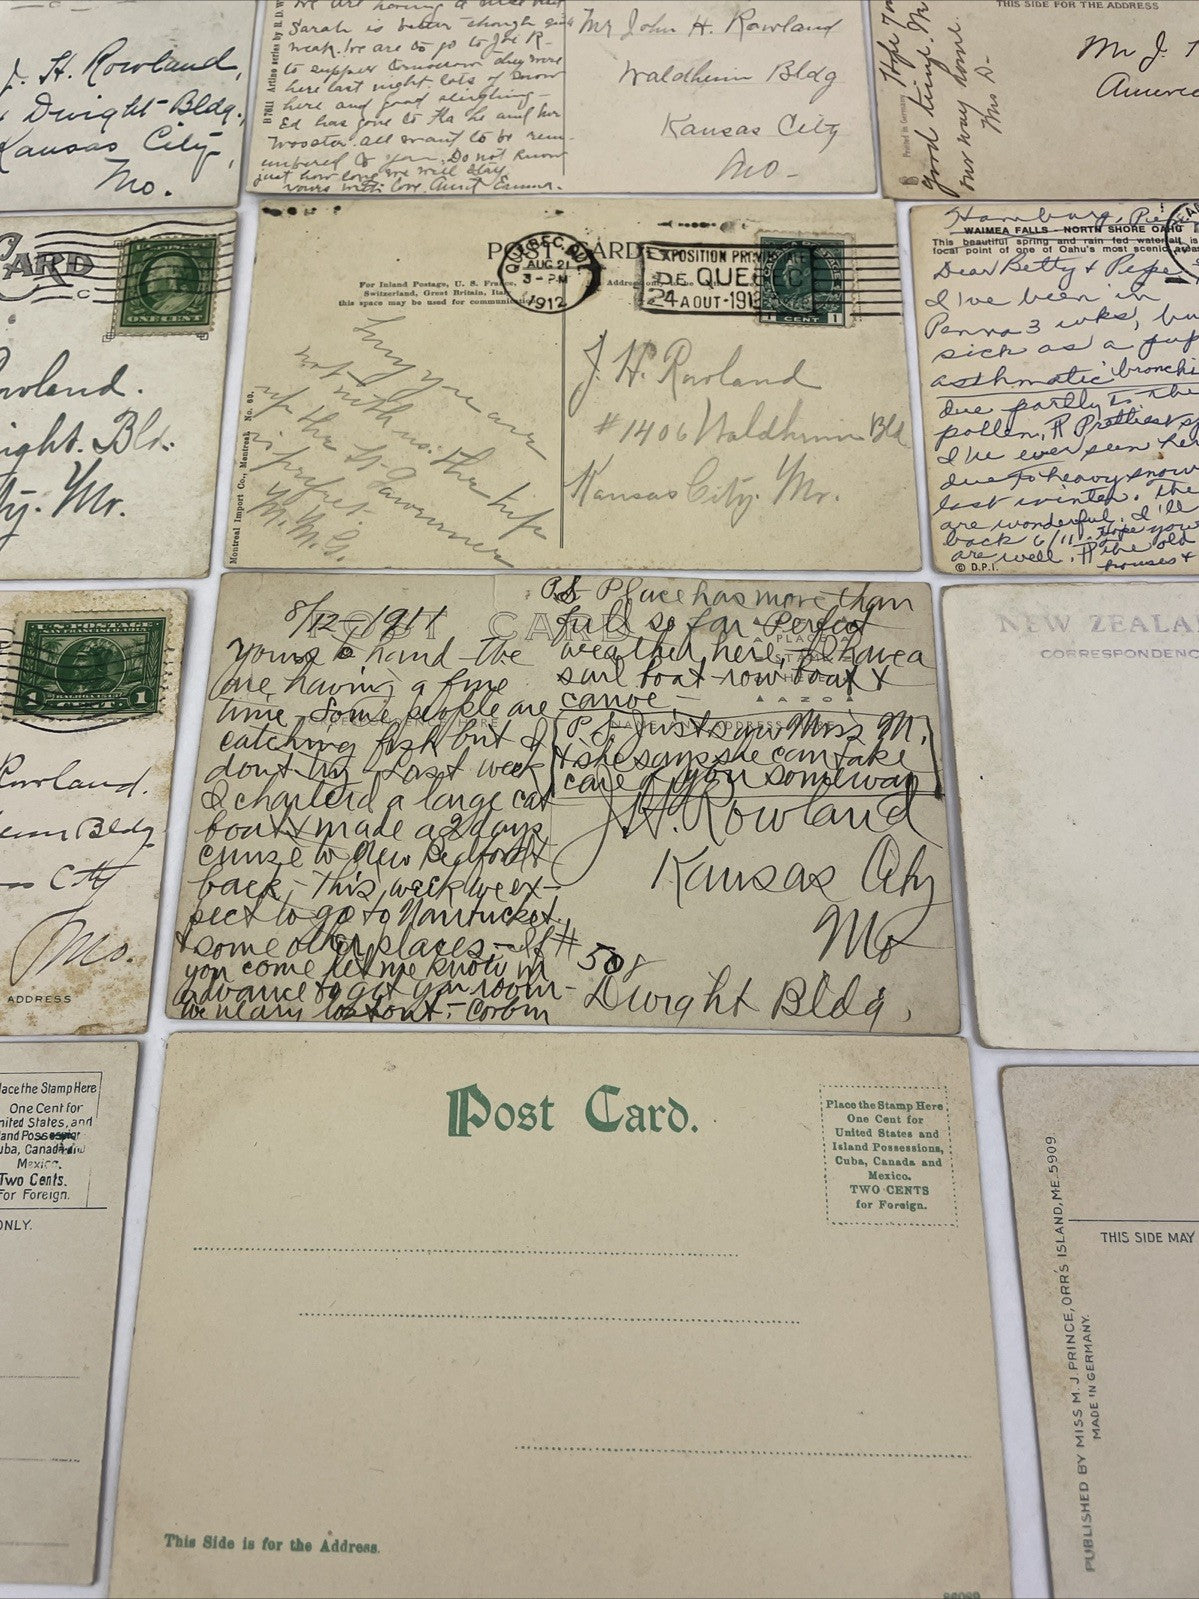 J. H. Rowland,
Dwight Bldg.,
Kansas City,
Mo.
B 7611 Artino series by R.D.W
We are having a nice visit
Sarah is better though
weak. We are to go to Joe R-
to supper tomorrow they were
here last night. lots of snow
here and good sleighing-
Ed has gone to Fla he and her
Wooster. all want to be rem-
embered to you. Do not know
just how long we will stay
yours with love. Aunt Emma.
Mr John H. Rowland
Waldheim Bldg
Kansas City
Mo-
THIS SIDE FOR THE ADDRESS
Printed in Germany
Hope
good time. M
our way home.
Mrs D-
Mr J.
America
CARD
ONE CENT
Rowland.
ight. Bld.
ty. Mo.
POST CARD
For Inland Postage, U. S. France,
Switzerland, Great Britain, Italy
this space may be used for communi
QUEBEC, QUE.
AUG 21
3-PM
1912
EXPOSITION PROVINCIALE
DE QUEBEC
24 AOUT-1912
1 CENT 1
Montreal Import Co., Montreal. No. 60.
Why you are
not with us. The trip
up the St. Lawrence
is perfect.
M.M.G.
J. H. Rowland
#1406 Waldheim Bld
Kansas City. Mo.
Hamburg, Pa
WAIMEA FALLS - NORTH SHORE OAHU
This beautiful spring and rain fed waterfall is
focal point of one of Oahu's most scenic
Dear Betty & Pepe
I've been in
Penna 3 wks, bu
sick as a pup
asthmatic bronchi
due partly to the
pollen, # Prettiest sp
I've ever seen her
due to heavy snow
last winter. The
are wonderful. I'll
back 6/11. Hope you
are well. # The old
houses +
© D.P.I.
U.S. POSTAGE
SAN FRANCISCO
1 CENT 1
Rowland.
Bldg
City
Mo.
ADDRESS
POST CARD
8/12-1911
Yours to hand-We
are having a fine
time. Some people are
catching fish but I
dont try. Last week
I charterd a large cat
boat & made a 2 days
cruize to New Bedford &
back- This week we ex-
pect to go to Nantucket
& some other places,- If
you come let me know in
advance to get you room-
we neary lost out.- Corbin
P.S. Place has more than
full so far- Perfect
weather here, I have a
sail boat-row boat &
canoe-
PLACE
STAMP
HERE
AZO
NAME AND ADDRESS HERE
P.S. Just saw Miss M.
& she says she can take
care of you someway
J.H. Rowland
Kansas City
Mo
# 508
Dwight Bldg.
NEW ZEALA
CORRESPONDENC
lace the Stamp Here
One Cent for
nited States, and
land Possession
uba, Canada and
Mexico.
Two Cents.
For Foreign.
ONLY.
Post Card.
Place the Stamp Here
One Cent for
United States and
Island Possessions,
Cuba, Canada and
Mexico.
TWO CENTS
for Foreign.
This Side is for the Address.
PUBLISHED BY MISS M. J. PRINCE, ORR'S ISLAND, ME. 5909
MADE IN GERMANY.
THIS SIDE MAY